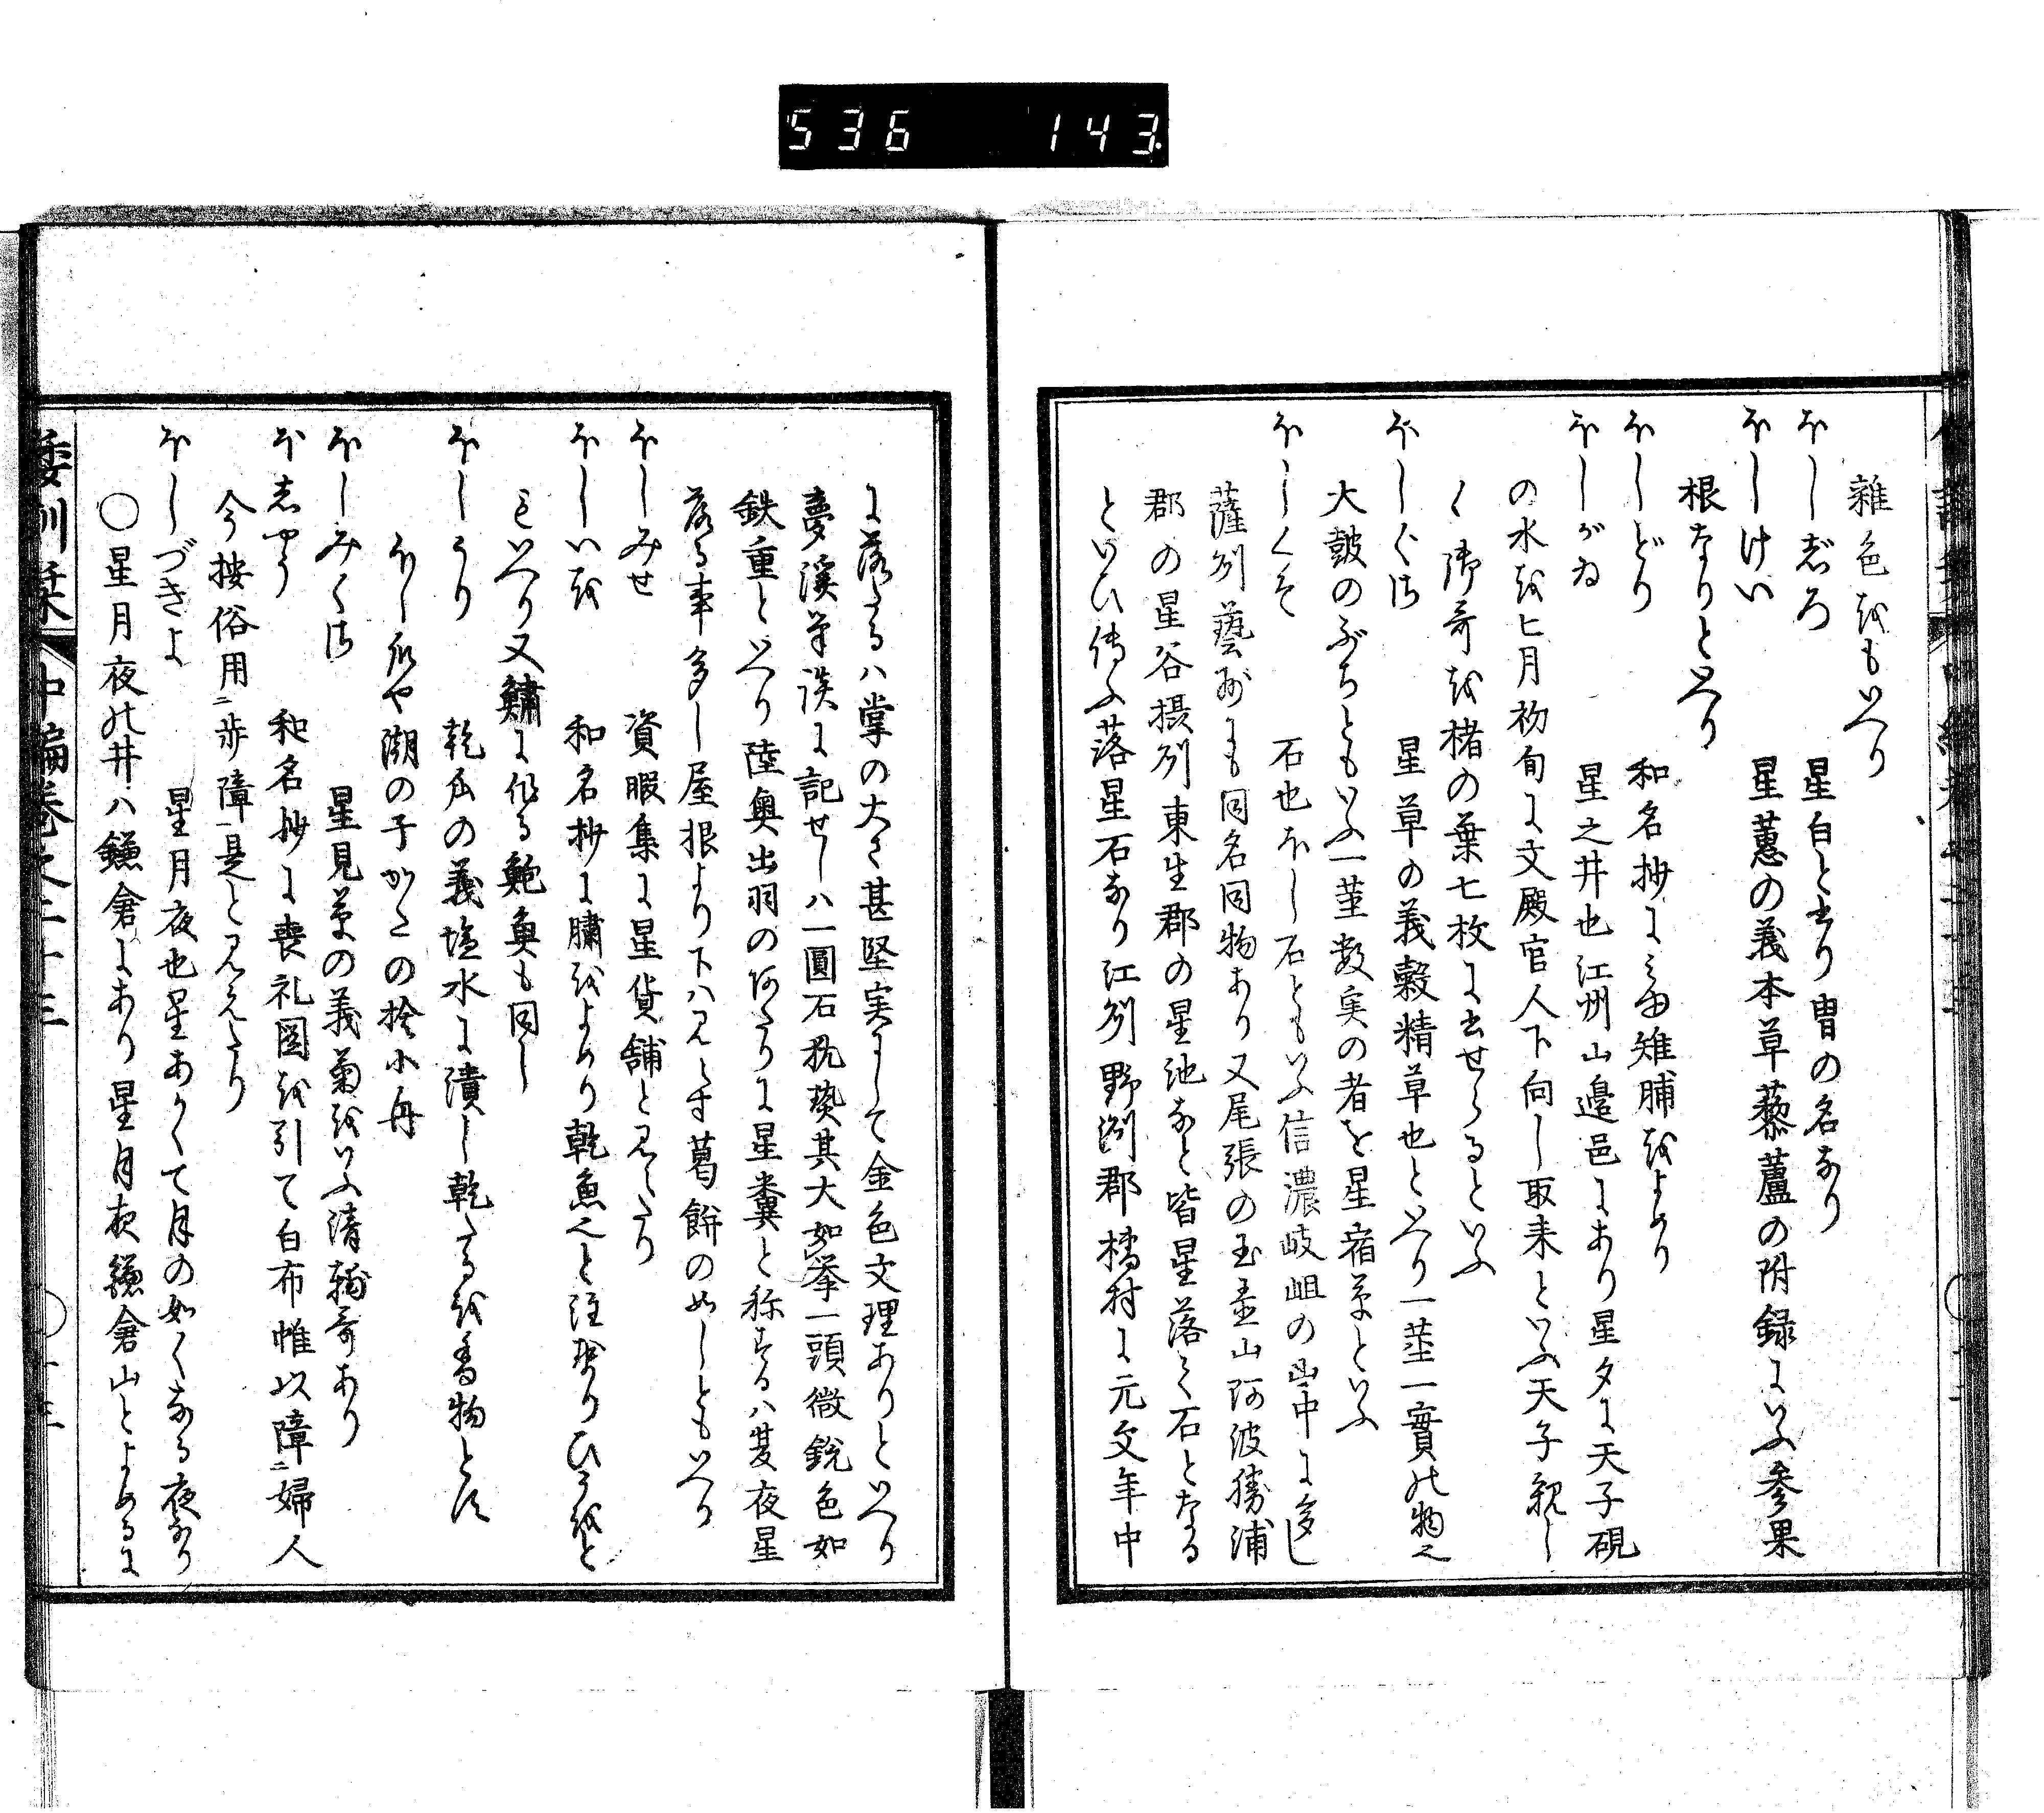 536 143
雑色をもいへり
ほしじろ 星白と書り冑の名なり
ほしけい 星蕙の義本草藜蘆の附録にいふ参果
根なりといへり
ほしどり 和名抄に雉脯をよめり
ほしがゐ 星之井也江州山邉邑にあり星夕に天子硯
の水を七月初旬に文殿官人下向し取来といふ天子親し
く御哥を楮の葉七枚に書せらるといふ
ほしくさ 星草の義穀精草也といへり一莖一實の物也
大皷のぶちともいふ一莖数実の者を星宿草といふ
ほしくそ 石也ほし石ともいふ信濃岐岨の山中に多し
薩州藝州にも同名同物あり又尾張の玉 山阿波勝浦
郡の星谷摂州東生郡の星池なと皆星落て石となる
といひ傳ふ落星石なり江州野洲郡橘村に元文年中
に落たるハ掌の大さ甚堅実にして金色文理ありといへり
夢渓筆談に記せしハ一圓石 其大如拳一頭微鋭色如
鉄重といへり陸奥出羽のあたりに星糞と称するハ夏夜星
落る事多し屋根より下ハ見えす葛餅の如しともいへり
ほしみせ 資暇集に星貨舗と見えたり
ほしいを 和名抄に鱐をよめり乾魚也と注せりひをと
もいへり又鱐に作る 魚も同し
ほしうり 乾瓜の義塩水に漬し乾たるを香物とす
ほし瓜や潮の干かたの捨小舟
ほしみくさ 星見草の義菊をいふ清輔哥あり
ほしやう 和名抄に喪礼図を引て白布帷以障ニ婦人
今按俗用ニ歩障一是と見えたり
ほしづきよ 星月夜也星あかくて月の如くなる夜なり
〇星月夜の井ハ鎌倉にあり星月夜鎌倉山とよめるに
倭訓栞 中編巻之二十三